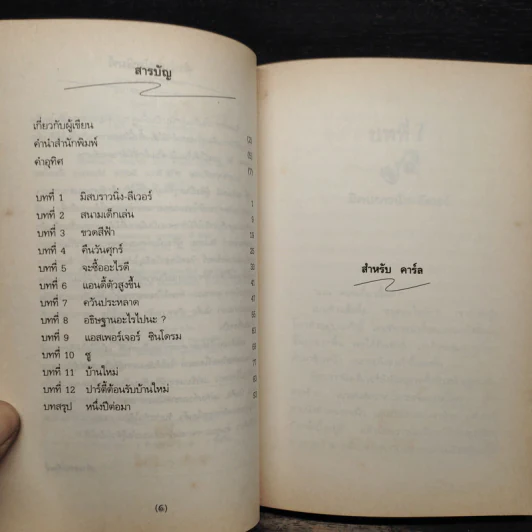 สารบัญ
เกี่ยวกับผู้เขียน
คำนำสำนักพิมพ์
คำอุทิศ
บทที่ 1 มิสบราวนิ่ง-ลีเวอร์
บทที่ 2 สนามเด็กเล่น
บทที่ 3 ขวดสีฟ้า
บทที่ 4 คืนวันศุกร์
บทที่ 5 จะซื้ออะไรดี
บทที่ 6 แอนตี้ตัวสูงขึ้น
บทที่ 7 ควันประหลาด
บทที่ 8 อธิษฐานอะไรไปนะ ?
บทที่ 9 แอสเพอร์เจอร์ ซินโดรม
บทที่ 10 ซู
บทที่ 11 บ้านใหม่
บทที่ 12 ปาร์ตี้ต้อนรับบ้านใหม่
บทสรุป หนึ่งปีต่อมา
(6)
สำหรับ คาร์ล